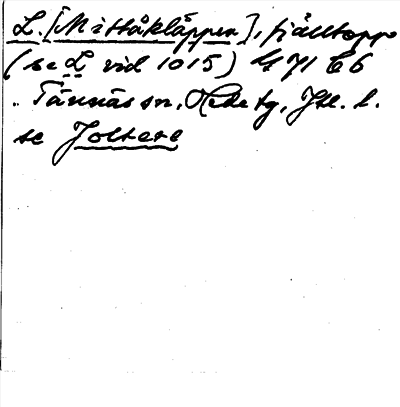 L. [Mittåkläppen], fjälltopp
(se L vid 1015) G 71 C 6
Tännäs sn, Hede tg, Jtl. l.
se